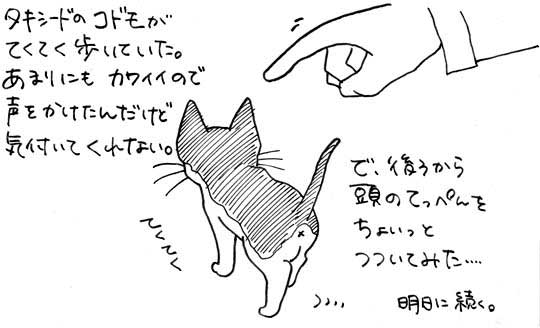 タキシードのコドモが
てくてく歩いていた。
あまりにもカワイイので
声をかけたんだけど
気付いてくれない。
てくてく
で、後ろから
頭のてっぺんを
ちょいっと
つついてみた‥‥
明日に続く。